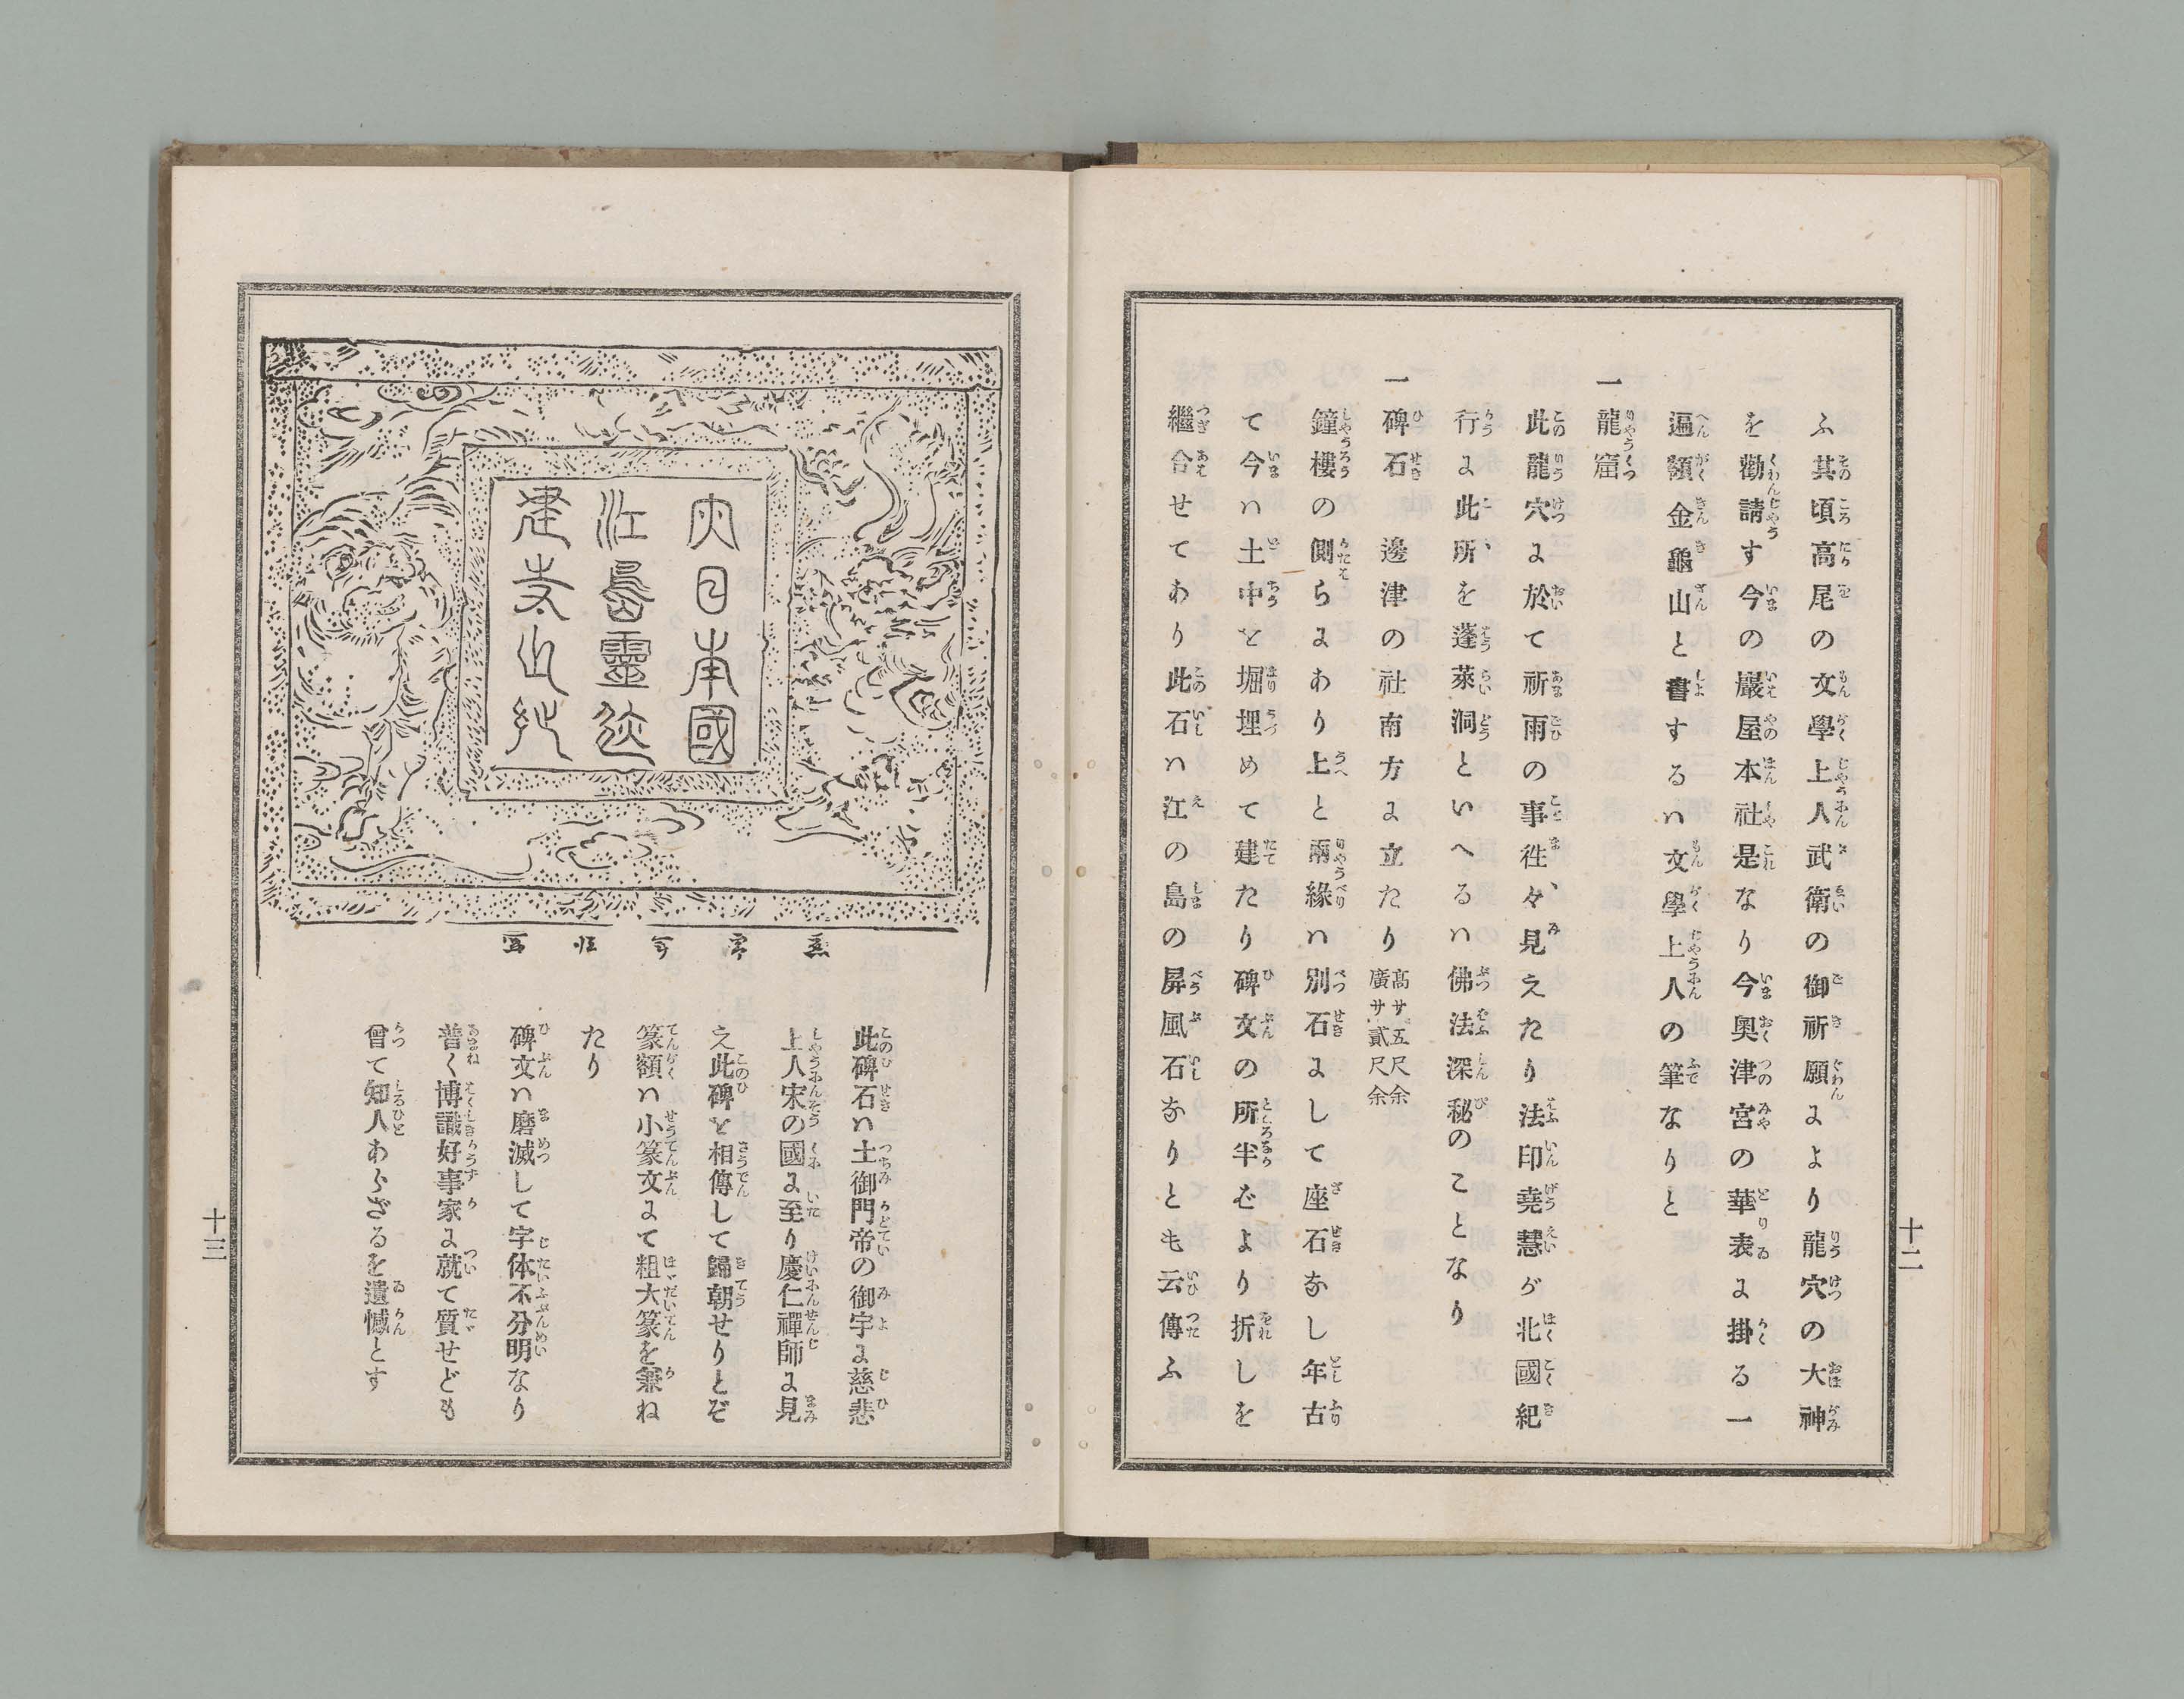 ふ其頃高尾の文學上人武衛の御祈願により龍穴の大神
を勸請す今の巖屋本社是なり今奧津宮の華表に掛る一
遍額金龜山と書するハ文學上人の筆なりと
一龍窟
此龍穴に於て祈雨の事徃々見えたり法印堯慧が北國紀
行に此所を蓬萊洞といへるハ佛法深秘のことなり
一碑石 邊津の社南方に立たり 高サ五尺余 廣サ貳尺余
鐘樓の側らにあり上と兩緣ハ別石にして座石なし年古
て今ハ土中を堀埋めて建たり碑文の所半ばより折しを
繼合せてあり此石ハ江の島の屏風石なりとも云傳ふ
十二
大日本國
江島靈迹
建寺之記
此碑石ハ土御門帝の御宇に慈悲
上人宋の國に至り慶仁禪師に見
え此碑を相傳して歸朝せりとぞ
篆額ハ小篆文にて粗大篆を兼ね
たり
碑文ハ磨滅して字体不分明なり
普く博識好事家に就て質せども
曾て知人あらざるを遺憾とす
十三